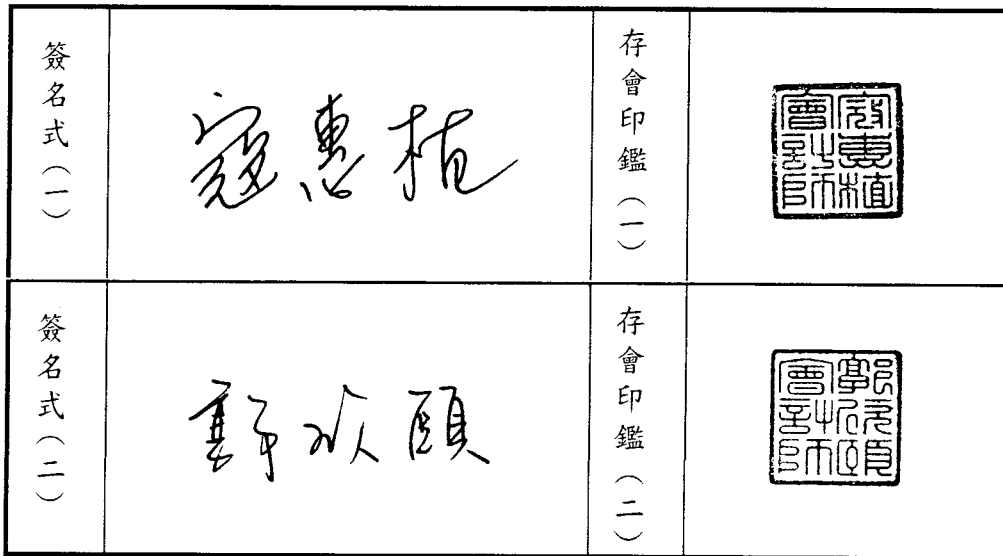 簽名式（一）
寇惠植
存會印鑑（一）
寇惠植會計師
簽名式（二）
存會印鑑（二）
會計師